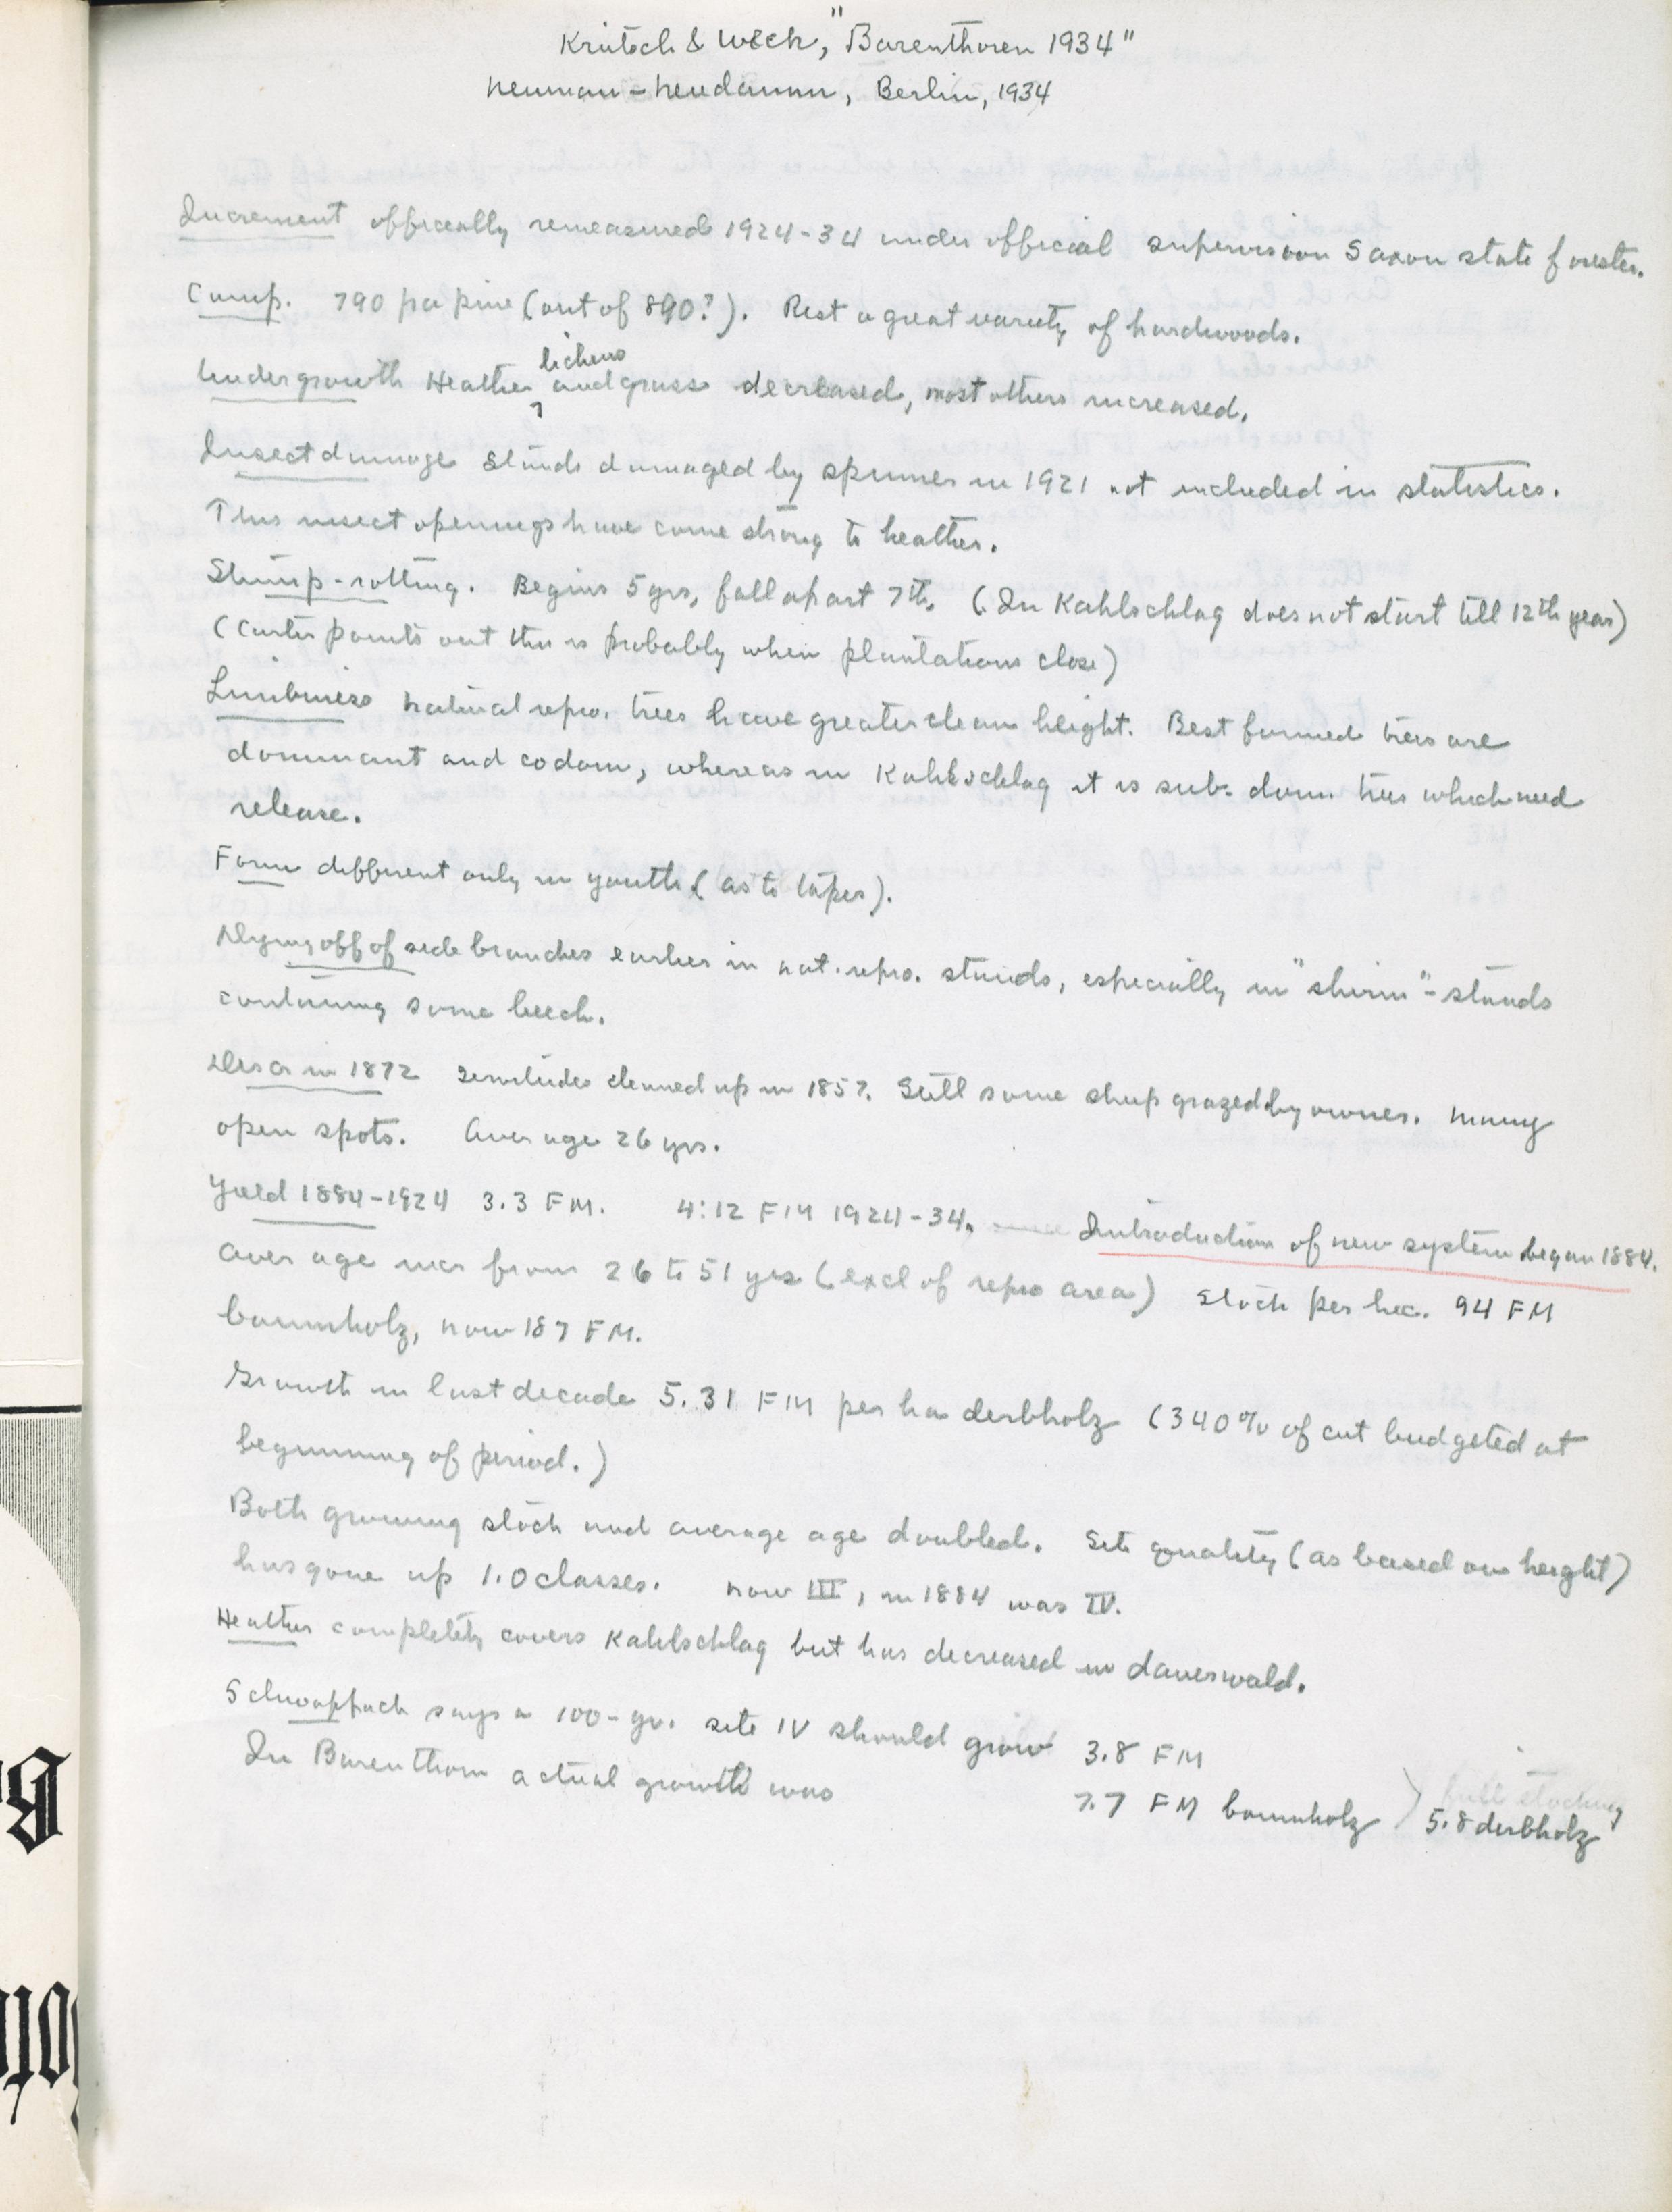 Krutsch & Weck, "Barenthoren 1934"
Neuman-Neudamm, Berlin, 1934
Increment officially remeasured 1924-34 under official supervision Saxon state forester.
Comp. 790 ha pine (out of 890?). Rest a great variety of hardwoods.
lichens
Undergrowth Heather and grass decreased, most others increased.
Insect damage Stands damaged by spanner in 1921 not included in statistics.
This insect openings have come strong to heather.
Stump-rotting. Begins 5 yrs, fall apart 7th. (In Kahlschlag does not start till 12th year)
(Carter points out this is probably when plantations close)
Limbiness Natural repro. trees have greater clean height. Best formed trees are
dominant and codom, whereas in Kahlschlag it is sub-dom trees which need
release.
Form different only in youth (as to taper).
Dying off of side branches earlier in nat. repro. stands, especially in "shirm"-stands
containing some beech.
Descr in 1872 Servitudes cleaned up in 1857. Still some sheep grazed by owner. Many
open spots. Aver age 26 yrs.
Yield 1884-1924 3.3 FM. 4:12 FM 1924-34. Introduction of new system began 1884.
Aver age incr from 26 to 51 yrs (excl of repro area) Stock per hec. 94 FM
baumholz, now 187 FM.
Growth in last decade 5.31 FM per ha derbholz (340% of cut budgeted at
beginning of period.)
Both growing stock and average age doubled. Site quality (as based on height)
has gone up 1.0 classes. Now III, in 1884 was IV.
Heather completely covers Kahlschlag but has decreased in dauerwald.
Schwappach says a 100-yr. site IV should grow 3.8 FM
In Barenthorn actual growth was 7.7 FM baumholz ) 5.8 derbholz
full stocking